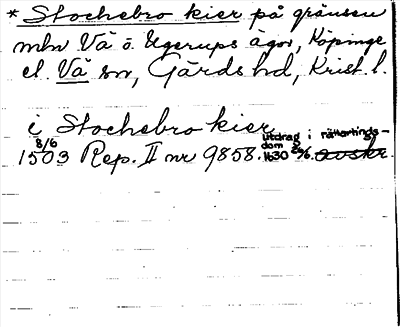 * Stochebro kier på gränsen
mln Vä o. Ugerups ägor, Köpinge
el. Vä sn, Gärds hd, Krist. l.
i Stochebro kier
1503 8/6 Rep. II nr 9858. utdrag i rättartings-
dom 1630 avskr.